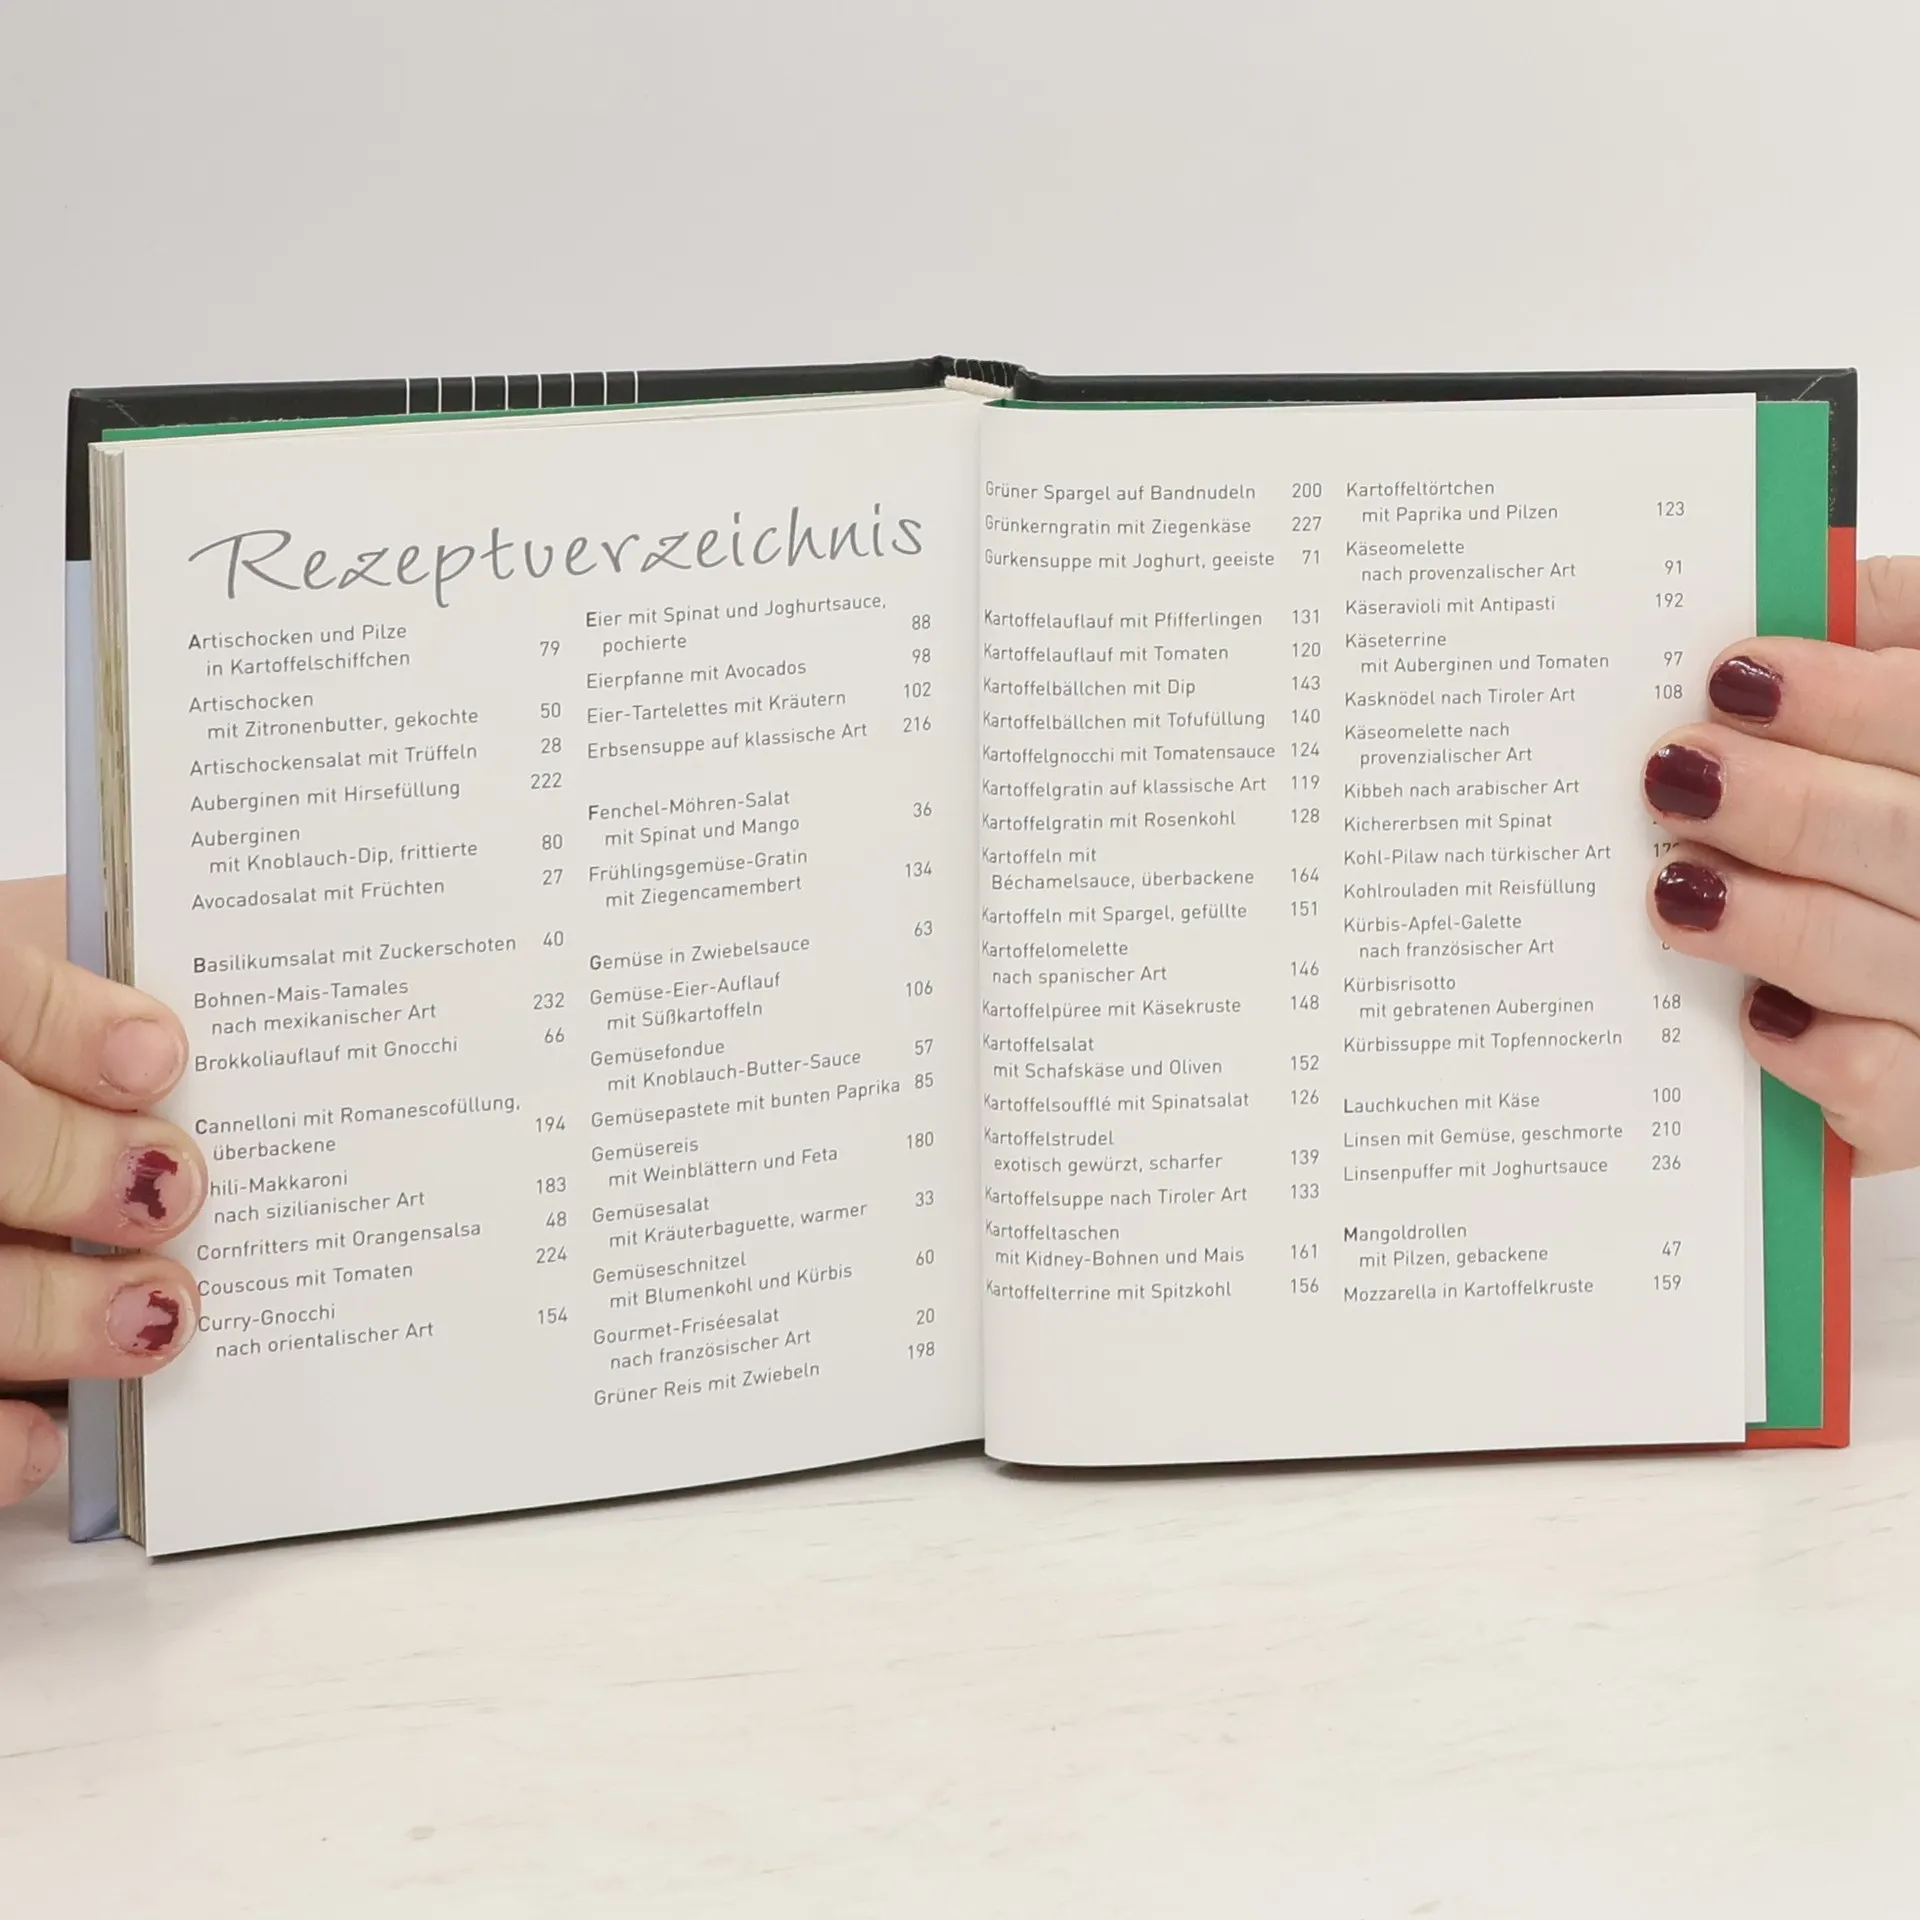 Rezeptverzeichnis
Artischocken und Pilze
in Kartoffelschiffchen 79
Artischocken
mit Zitronenbutter, gekochte 50
Artischockensalat mit Trüffeln 28
Auberginen mit Hirsefüllung 222
Auberginen
mit Knoblauch-Dip, frittierte 80
Avocadosalat mit Früchten 27
Basilikumsalat mit Zuckerschoten 40
Bohnen-Mais-Tamales
nach mexikanischer Art 232
Brokkoliauflauf mit Gnocchi 66
Cannelloni mit Romanescofüllung,
überbackene 194
hili-Makkaroni
nach sizilianischer Art 183
Cornfritters mit Orangensalsa 48
Couscous mit Tomaten 224
Curry-Gnocchi
nach orientalischer Art 154
Eier mit Spinat und Joghurtsauce,
pochierte 88
Eierpfanne mit Avocados 98
Eier-Tartelettes mit Kräutern 102
Erbsensuppe auf klassische Art 216
Fenchel-Möhren-Salat
mit Spinat und Mango 36
Frühlingsgemüse-Gratin
mit Ziegencamembert 134
Gemüse in Zwiebelsauce 63
Gemüse-Eier-Auflauf
mit Süßkartoffeln 106
Gemüsefondue
mit Knoblauch-Butter-Sauce 57
Gemüsepastete mit bunten Paprika 85
Gemüsereis
mit Weinblättern und Feta 180
Gemüsesalat
mit Kräuterbaguette, warmer 33
Gemüseschnitzel
mit Blumenkohl und Kürbis 60
Gourmet-Friséesalat
nach französischer Art 20
Grüner Reis mit Zwiebeln 198
Grüner Spargel auf Bandnudeln 200
Grünkerngratin mit Ziegenkäse 227
Gurkensuppe mit Joghurt, geeiste 71
Kartoffelauflauf mit Pfifferlingen 131
Kartoffelauflauf mit Tomaten 120
Kartoffelbällchen mit Dip 143
Kartoffelbällchen mit Tofufüllung 140
Kartoffelgnocchi mit Tomatensauce 124
Kartoffelgratin auf klassische Art 119
Kartoffelgratin mit Rosenkohl 128
Kartoffeln mit
Béchamelsauce, überbackene 164
Kartoffeln mit Spargel, gefüllte 151
Kartoffelomelette
nach spanischer Art 146
Kartoffelpüree mit Käsekruste 148
Kartoffelsalat
mit Schafskäse und Oliven 152
Kartoffelsoufflé mit Spinatsalat 126
Kartoffelstrudel
exotisch gewürzt, scharfer 139
Kartoffelsuppe nach Tiroler Art 133
Kartoffeltaschen
mit Kidney-Bohnen und Mais 161
Kartoffelterrine mit Spitzkohl 156
Kartoffeltörtchen
mit Paprika und Pilzen 123
Käseomelette
nach provenzalischer Art 91
Käseravioli mit Antipasti 192
Käseterrine
mit Auberginen und Tomaten 97
Kasknödel nach Tiroler Art 108
Käseomelette nach
provenzialischer Art
Kibbeh nach arabischer Art
Kichererbsen mit Spinat
Kohl-Pilaw nach türkischer Art
Kohlrouladen mit Reisfüllung
Kürbis-Apfel-Galette
nach französischer Art
Kürbisrisotto
mit gebratenen Auberginen 168
Kürbissuppe mit Topfennockerln 82
Lauchkuchen mit Käse 100
Linsen mit Gemüse, geschmorte 210
Linsenpuffer mit Joghurtsauce 236
Mangoldrollen
mit Pilzen, gebackene 47
Mozzarella in Kartoffelkruste 159